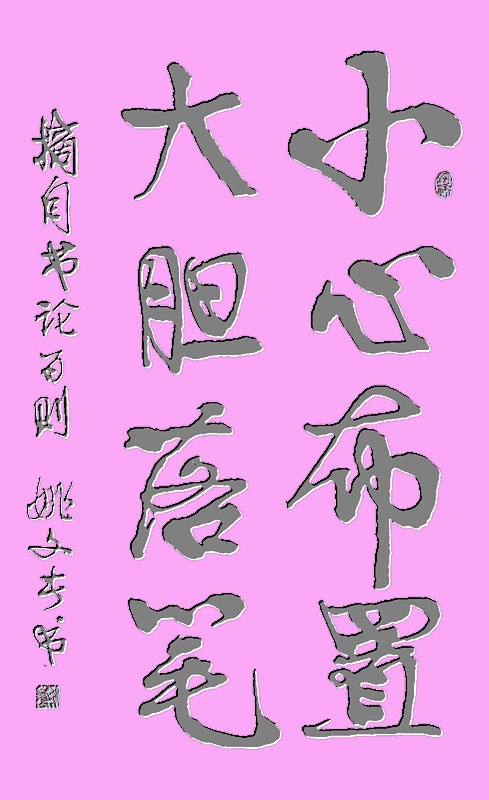 小心布置
大胆落笔
摘自书论百则 姚文书